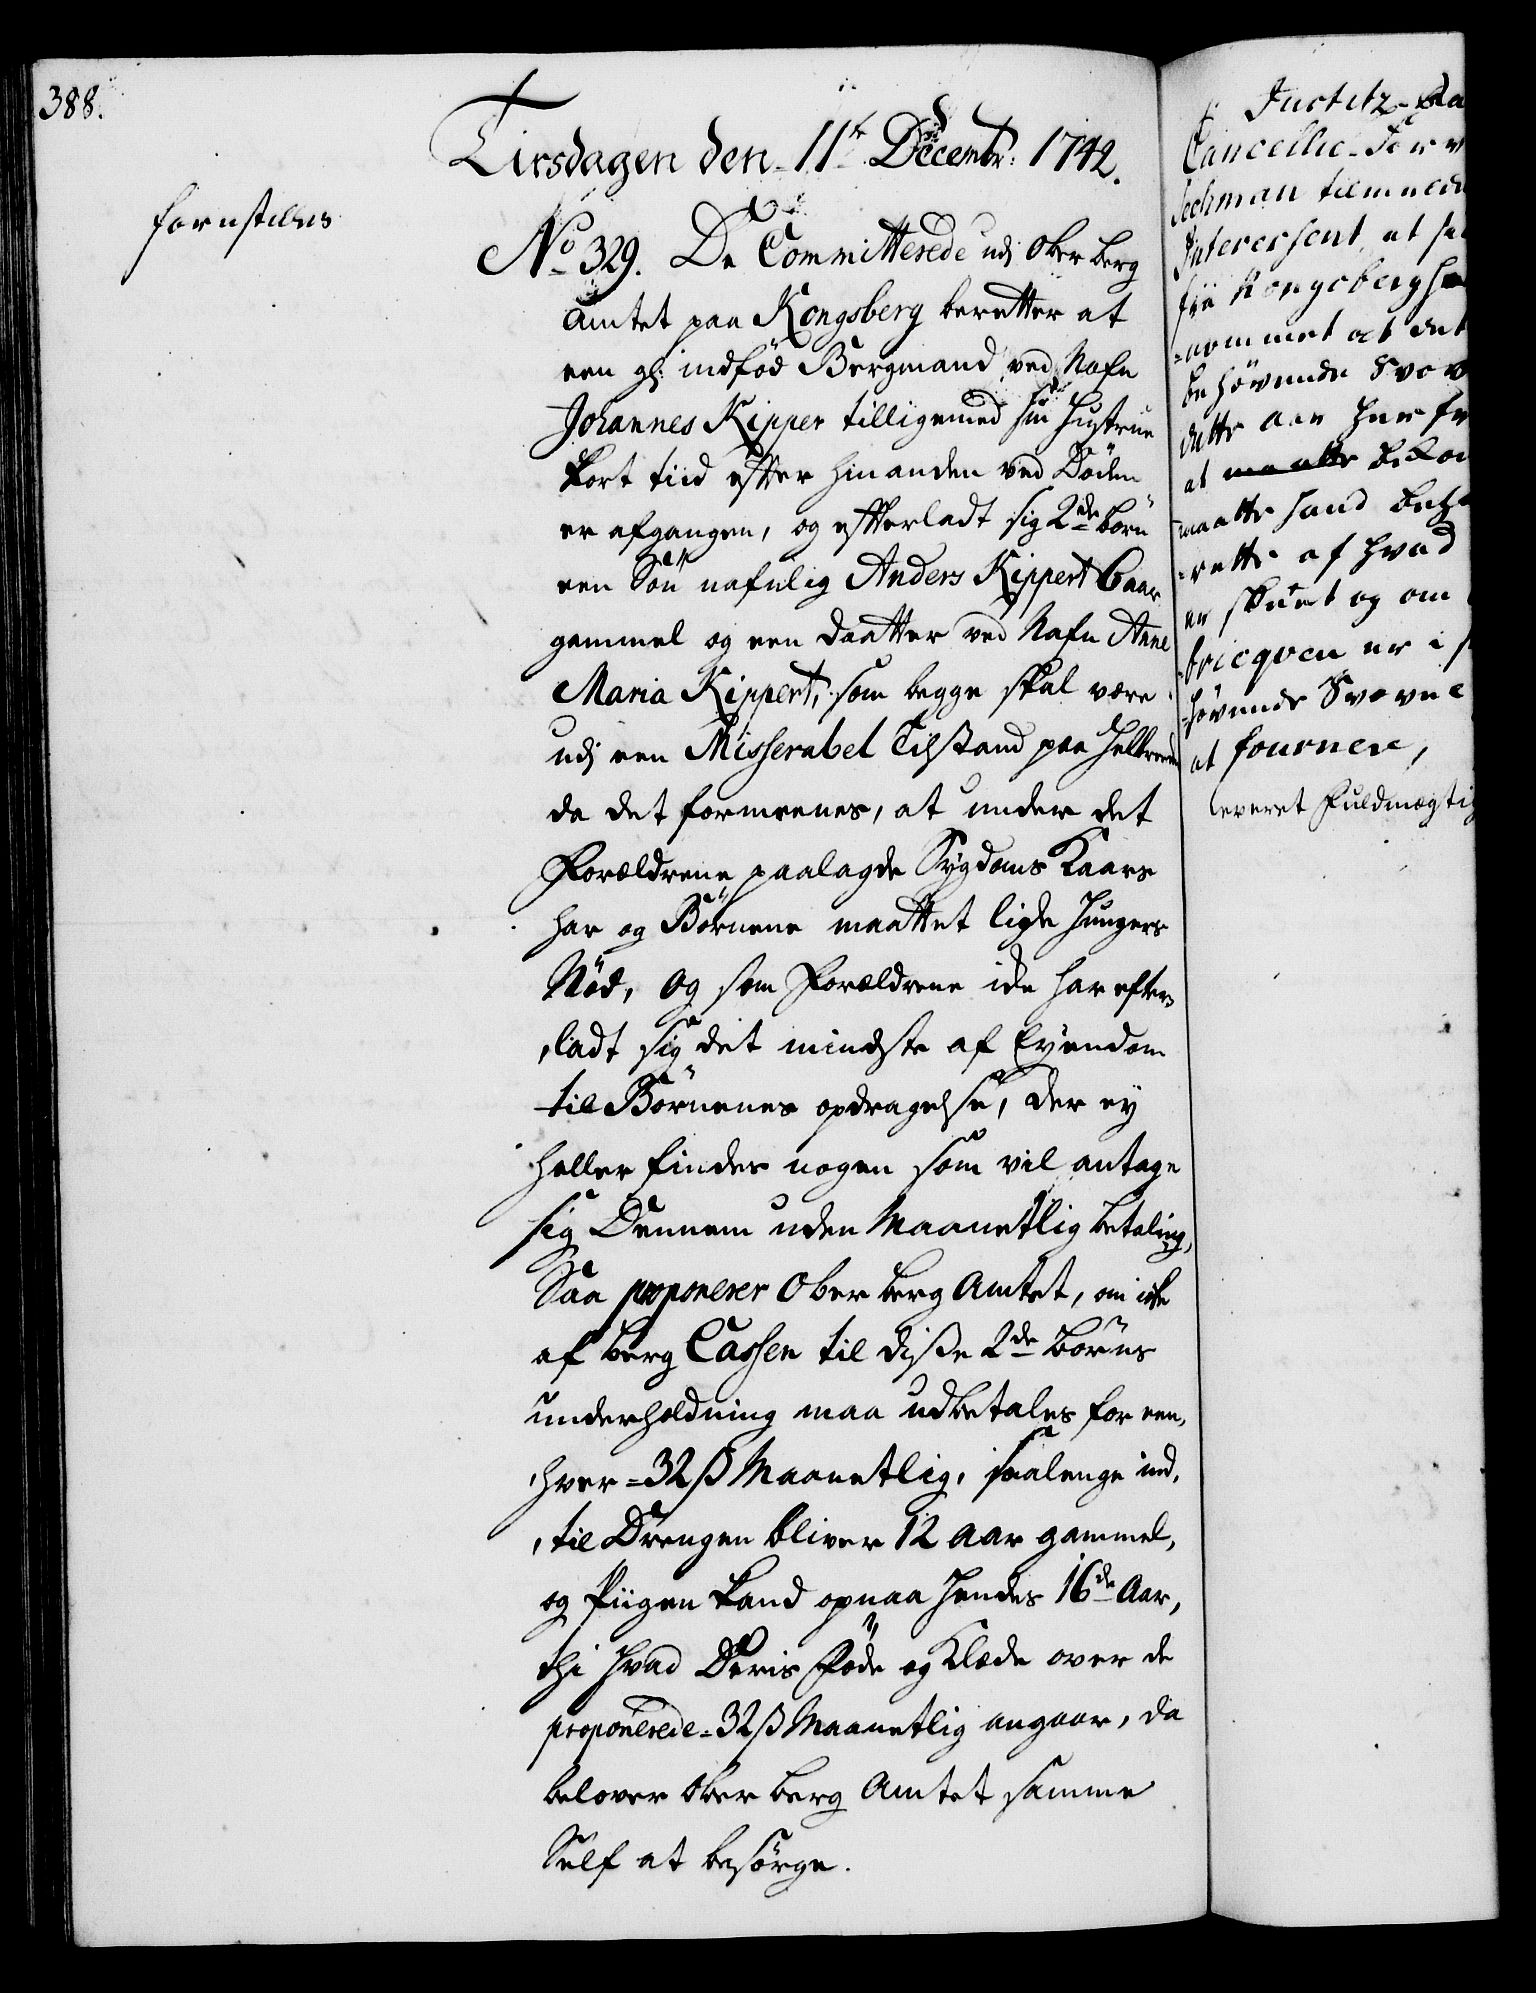 388.
Tirsdagen den 11te Decembr: 1742.
forestilles
No 329. De Committerede udj Ober berg
Amtet paa Kongsberg beretter at
een gl: indfød Bergmand ved Nafn
Johannes Kipper tilligemed sin Hustrue
kort tiid efter hinanden ved Døden
er afgangen, og efterladt sig 2de børn
een Søn nafnlig Anders Kippert 6 aar
gammel og een Daatter ved Nafn Anne
Maria Kippert, som begge skal være
udj een Misserabel Tilstand paa
da det formeenes, at under det
Forældrene paalagde Sygdoms Kaars
har og Børnene maattet lide Hungers
Nød, og som Forældrene icke har efter,
,ladt sig det mindste af Eyendom
til Børnenes opdragelse, der ey
heller findes nogen som vil antage
sig Dennem uden Maanetlig betaling,
Saa proponerer Ober berg Amtet, om icke
af berg Cassen til disse 2de børns
underholdning maa udbetales for een,
,hver = 32 ß Maanetlig, saalenge ind,
,til Drengen bliver 12 aar gammel,
og Piigen kand opnaa Hendes 16de Aar,
thi hvad Deris Føde og Klæde over de
proponerede = 32 ß Maanetlig angaar, da
belover Ober berg Amtet samme
Self at besørge.
Justitz-
Cancellie-
Interessent, at
fra Kongsberg
=nommet at det
behøvende Svovel
dette aar her
at maatte
maatte hand
=rette af hvad
er skeet og om
=bricqven er i
=høvende Svovel
at fournere,
leveret Fuldmægtig